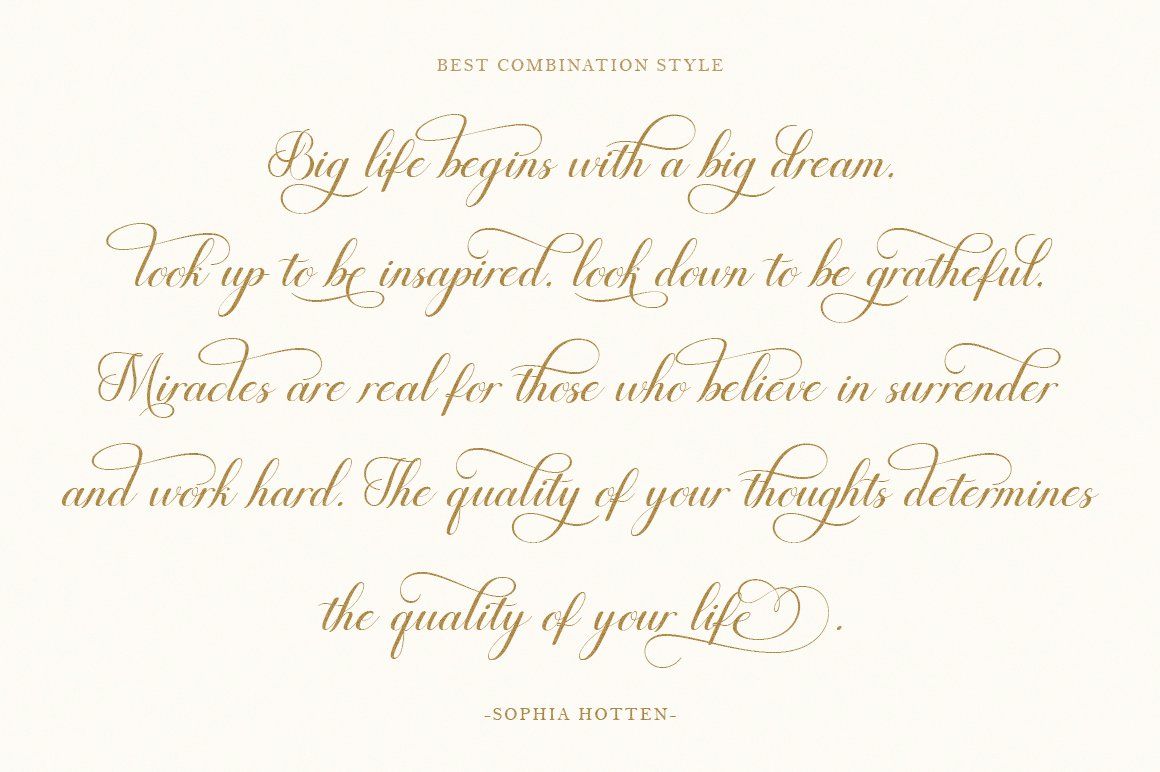 BEST COMBINATION STYLE
Big life begins with a big dream.
look up to be insapired. look down to be gratheful.
Miracles are real for those who believe in surrender
and work hard. The quality of your thoughts determines
the quality of your life.
-SOPHIA HOTTEN-